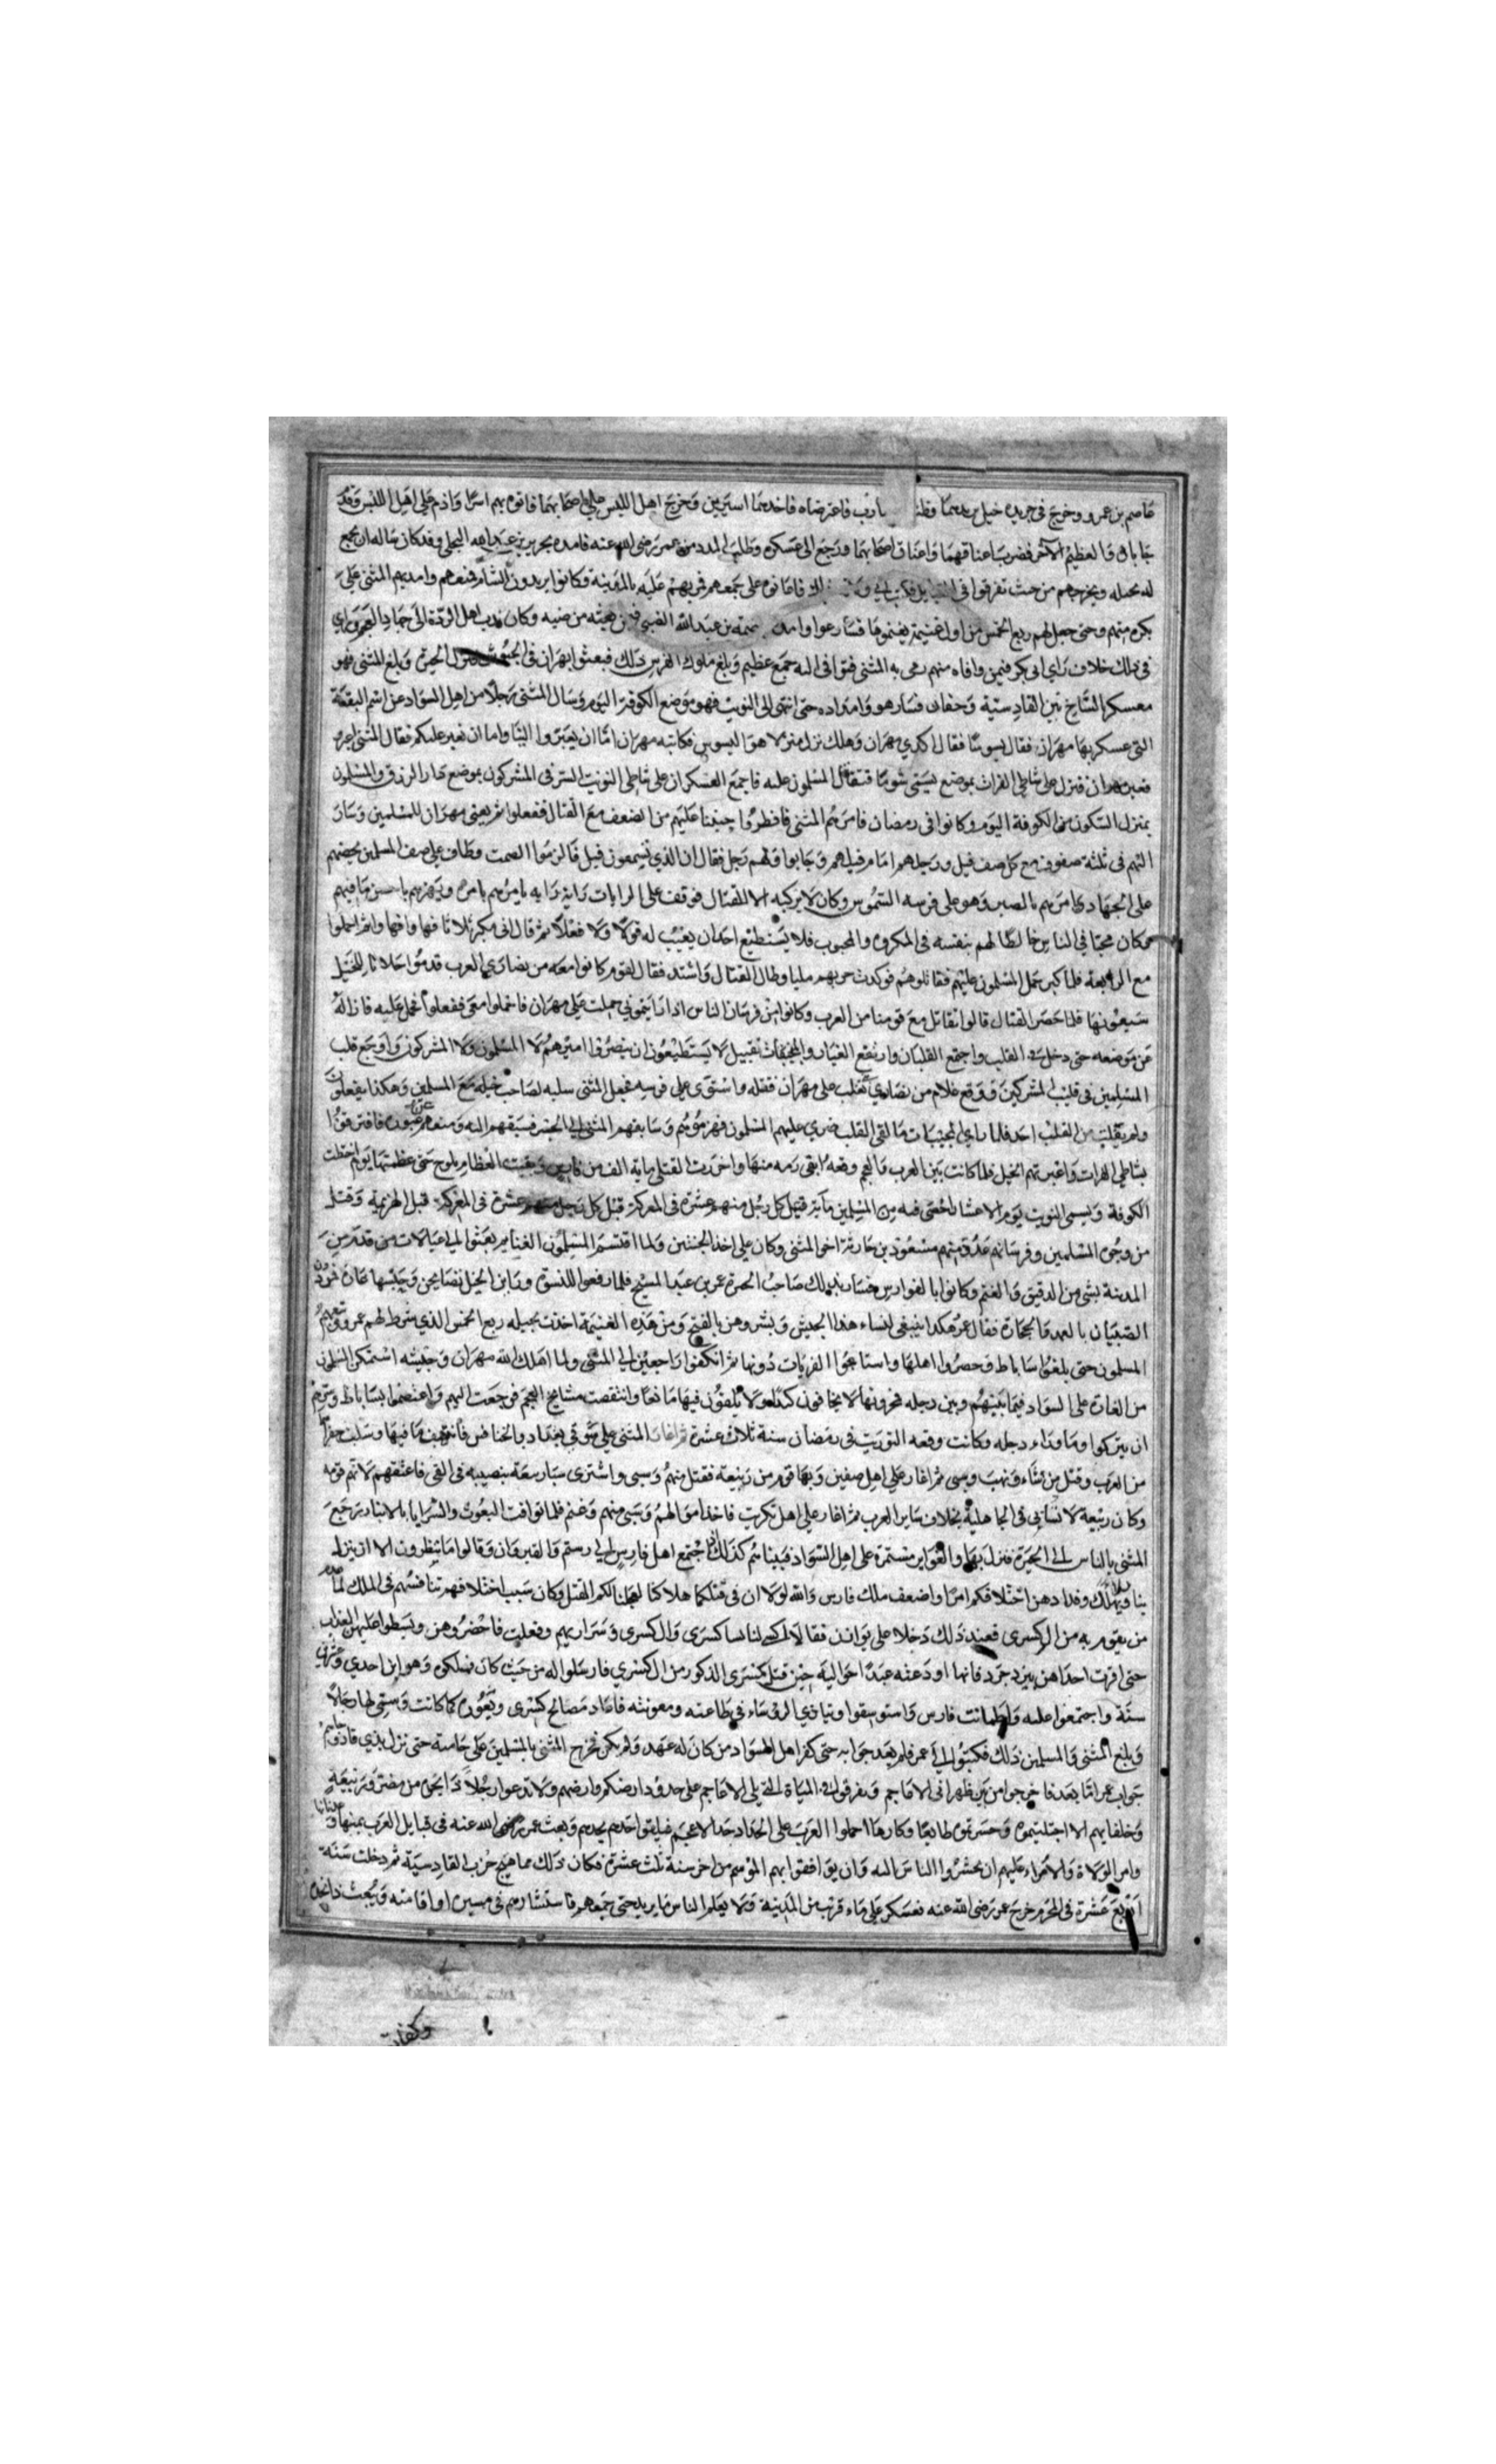 عاصم بن عمرو وخرج فى جريده خيل يريدهما فظنا هارب فاعترضاه فاخذهما اسيرين وخرج اهل الليس على اصحابهما فاتوه بهم اسرا واذم على اهل الليس وقدم
جابان والعظيم الآخر فضرب اعناقهما واعناق اصحابهما ورجع الى عسكره وطلب المدد من عمر رضى الله عنه فامده بجرير بن عبد الله البجلى وقد كان ساله ان يجمع
له بجيله ويخرجهم من حيث تفرقوا فى القبايل فكتب الى فاقاموه على جمعهم فمر بهم عليه بالمدينة وكانوا يريدون الشام فمنعهم وامد بهم المثنى على
كره منهم وحتى جعل لهم ربع الخمس من اول غنيمة يغنموها فسارعوا وامد عصمة بن عبد الله الضبى فيمن معه من ضبه وكان ندب اهل الردة الى جهاد العجم وراى
فى ذلك خلاف راى ابى بكر فيمن وافاه منهم رمى به المثنى فتوافى اليه جمع عظيم وبلغ ملوك الفرس ذلك فبعثوا مهران فى الجنود فنزل الحيرة وبلغ المثنى فهو
معسكر السباخ بين القادسية وخفان فسار هو وامداده حتى انتهى الى البويب فهو موضع الكوفة اليوم وسال المثنى رجلا من اهل السواد عن اسم البقعة
التى عسكر بها مهران فقال بسوسيا فقال اكدي مهران وهلك نزل منزلا هو البسوس فكاتبه مهران اما ان تعبروا الينا واما ان نعبر عليكم فقال المثنى اعبروا
فعبر مهران فنزل على شاطئ الفرات بموضع يسمى شوميا فتقابل المسلمون عليه فاجتمع العسكران على شاطئ البويب الشرقى المشركون بموضع دار الرزق والمسلمون
بمنزل السكون من الكوفة اليوم وكانوا فى رمضان فامرهم المثنى فافطروا جميعا عليهم من الضعف مع القتال ففعلوا ثم تعبى مهران للمسلمين وسار
اليهم فى ثلثة صفوف مع كل صف فيل ورجلهم امام فيلهم وجاءوا ولهم زجل فقال ان الذي تسمعون فشل فالزموا الصمت وطاف على صف المسلمين يحضهم
على الجهاد ويامرهم بالصبر وهو على فرسه الشموس وكان لا يركبه الا للقتال فوقف على الرايات راية راية يامرهم بامره ويهزهم باحسن ما فيهم
وكان محببا فى الناس خالطا لهم بنفسه فى المكروه والمحبوب فلا يستطيع احدا ان يعيب له قولا ولا فعلا ثم قال انى مكبر ثلاثا فتهيوا ثم احملوا
مع الرابعة فلما كبر حمل المسلمون عليهم فقاتلوهم فركدت حربهم مليا وطال القتال واشتد فقال لقوم كانوا معه من نصارى العرب قدموا جلابا للخيل
يبيعونها فلما حضر القتال قالوا نقاتل مع قومنا من العرب وكانوا من فرسان الناس اذا رايتموني حملت على مهران فاحملوا معى ففعلوا فحمل عليه فازاله
عن موضعه حتى دخل فى القلب واجتمع القلبان وارتفع الغبار والمجنبات تقتتل لا يستطيعون ان ينصرفوا اميرهم لا المسلمون ولا المشركون واوجع قلب
المسلمين فى قلب المشركين ووقع غلام من نصارى تغلب على مهران فقتله واستوى على فرسه فجعل المثنى سلبه لصاحب خيله مع المسلمين وهكذا يفعلون
ولم يفلت من القلب احد فلما راى المجنبات ما لقى القلب ضرى عليهم المسلمون فهزموهم وسابقهم المثنى الى الجسر فسبقهم اليه ومنعهم عن عبوره فافترقوا
بشاطئ الفرات واعتبرتهم الخيل فما كانت بين العرب والعجم وقعة ابقى رمه منها واحزرت القتلى ماية الف من فارس وبقيت العظام يلوح حتى عظمتها يوم اختطت
الكوفة ويسمى البويب يوم الاعشار احصى فيه من المسلمين مائة قتل كل رجل منهم عشرة فى المعركة قتل كل رجل منهم عشرة فى المعركة قبل الهزيمة وقتل
من وجوه المسلمين وفرسانهم عدة منهم مسعود بن حارثة اخو المثنى وكان على احد الجنبتين ولما اقتسم المسلمون الغنايم بعثوا الى عيالات من قدم من
المدينة بشئ من الدقيق والغنم وكانوا بالقوادس فسار بذلك صاحب الحيرة عمرو بن عبد المسيح فلما رفعوا للنسوة وراين الخيل تصايحن وحسبنها غارة فقمن دون
الصبيان بالعمد والحجارة فقال عمرو هكذا ينبغى لنساء هذا الجيش وبشروهن بالفتح ومن هذه الغنيمة اخذت بجيله ربع الخمس الذي شرط لهم عمر وتبعهم
المسلمون حتى بلغوا ساباط فحصروا اهلها واستاحوا القريات دونها ثم انكفوا راجعين الى المثنى ولما اهلك الله مهران وجيشه استمكن المسلمون
من الغارة على السواد فيما بينهم وبين دجله فمخرونها لا يخافون كيدا ولا يلقون فيها مانعا وانتقصت مشايخ العجم فرجعت اليهم واعتصموا بساباط وسرهم
ان يتركوا وما وراء دجله وكانت وقعه البويب فى رمضان سنة ثلاث عشرة ثم اغار المثنى على سوقي بغداد والخنافس فانتهب ما فيها وسلب خفرا
من العرب وقتل من شاء ونهب وسبى ثم اغار على اهل صفين وبها قوم من ربيعة فقتل منهم وسبى واشترى سبا ربيعة بنصيبه فى الفى فاعتقهم لانهم قومه
وكان ربيعة لا تسابى فى الجاهلية بخلاف ساير العرب ثم اغار على اهل تكريت فاخذ اموالهم وسبى منهم وغنم فلما توافت البعوث والسرايا بالانبار رجع
المثنى بالناس الى الحيرة فنزل بها والغواير مستمرة على اهل السواد فبينا هم كذلك اذ اجتمع اهل فارس الى رستم والفيروزان وقالوا ما تنظرون الا ان ينزل
بنا البلاء ونهلك وقد ادهن اختلافكم امرنا واضعف ملك فارس والله لولا ان فى قتلكما هلاكنا لعجلنا لكم القتل وكان سبب اختلافهم تنافسهم فى الملك لعدم
من يقوم به من ال كسرى فعند ذلك دخلا على بوران فقالا اكتبى لنا نسا كسرى وال كسرى وسراريهم وفعلت فاحضروهن وبسطوا عليهن العذاب
حتى اقرت احداهن بيزدجرد فانها اودعته عند اخواليه حين قتل كسرى الذكور من ال كسرى فارسلوا اليه من حيث كان فملكوه وهو ابن احدى وعشرين
سنة واجتمعوا عليه واطمانت فارس واستوسقوا وتبارى الروساء فى طاعته ومعونته فاعاد مصالح كسرى وثغوره كما كانت وسمى لها رجالا
وبلغ المثنى والمسلمين ذلك فكتبوا الى عمر فلم يعد جوابه حتى كفر اهل السواد من كان له عهد ولم يكن فخرج المثنى بالمسلمين على حامية حتى نزل بذي قار وجاءهم
جواب عمر اما بعد فاخرجوا من بين ظهرانى الاعاجم وتفرقوا فى المياه التى تلى الاعاجم على حدود ارضكم وارضهم ولا تدعوا رجلا ذا نجدة من مضر وربيعة
وحلفايهم الا اجتلبتموه وحشرتموه طايعا وكارها احملوا العرب على الجد اذ جد الاعجم فيلقوا جدهم بجدهم وبعث عمر رضى الله عنه فى قبايل العرب يمنها وعدنانها
وامر الولاة والامراء عليهم ان يحشروا الناس اليه وان يوافقوا بهم الموسم من اخر سنة ثلث عشرة فكان ذلك مما هيج حرب القادسية ثم دخلت سنة
اربع عشرة فى المحرم خرج عمر رضى الله عنه فعسكر على ماء قرب من المدينة ولا يعلم الناس ما يريد حتى جمعهم فاستشارهم فى مسيره او اقامته وبعث